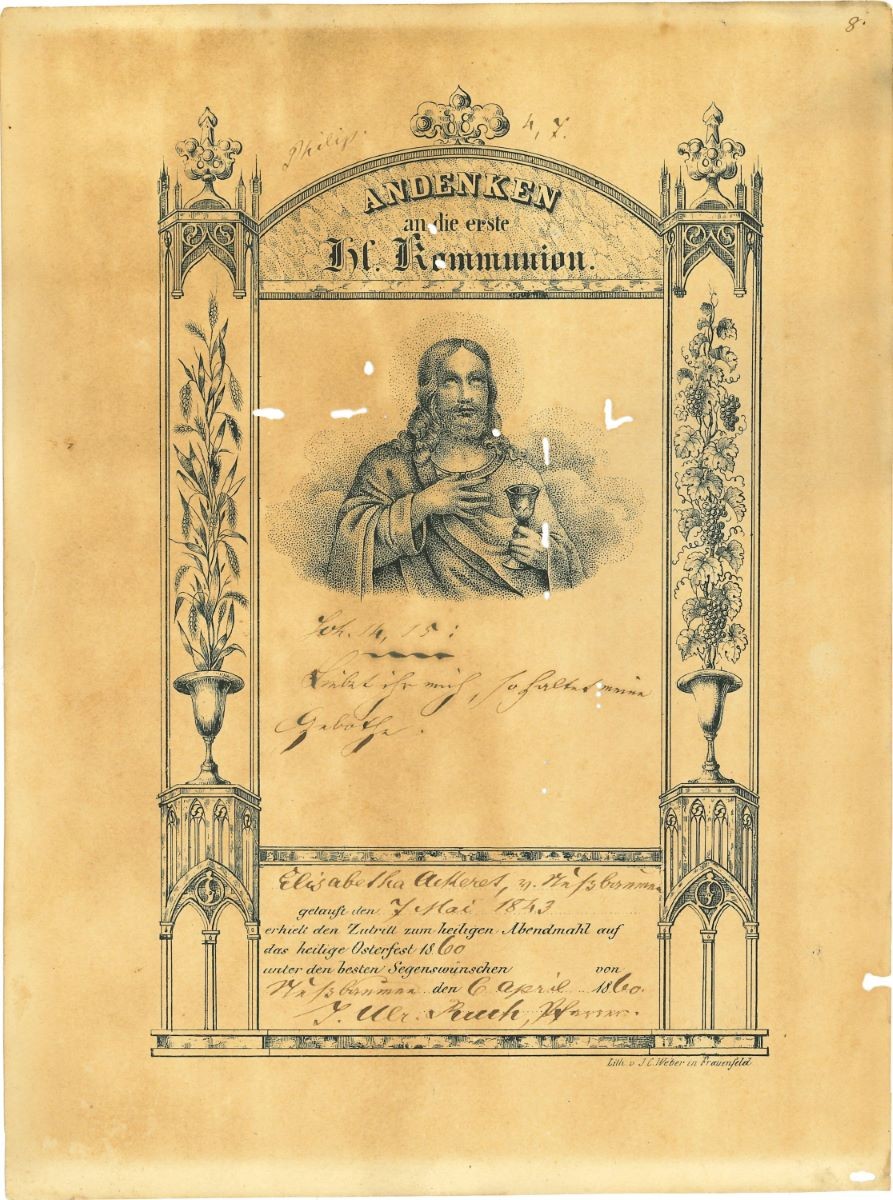 8.
Philip. 4, 7.
ANDENKEN
an die erste
Hl. Kommunion.
Joh. 14, 15:
Liebet ihr mich, so haltet meine
Gebothe.
Elisabetha Ackeret, v. Nußbaumen
getauft den 7 Mai 1843
erhielt den Zutritt zum heiligen Abendmahl auf
das heilige Osterfest 1860
unter den besten Segenswünschen von
Nußbaumen den 6 April 1860.
J. Ulr. Pfarrer.
Lith. v. J. C. Weber in Frauenfeld